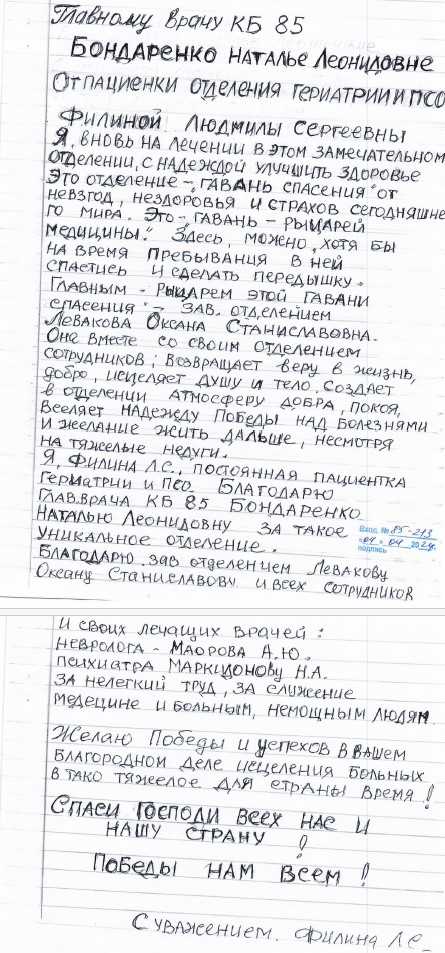 Главному Врачу КБ 85
Бондаренко Наталье Леонидовне
От пациенки отделения гериатрии и ПСО
Филиной Людмилы Сергеевны
Я, вновь на лечении в этом замечательном
отделении, с надеждой улучшить здоровье
Это отделение –„гавань спасения" от
невзгод, нездоровья и страхов сегодняшне
го мира. Это –„гавань – рыцарей
медицины." Здесь, можно, хотя бы
на время пребывания в ней
спастись и сделать передышку.
Главным – рыцарем этой гавани
спасения" – зав. отделением
Левакова Оксана Станиславовна.
Она вместе со своим отделением
сотрудников; возвращает веру в жизнь,
добро, исцеляет душу и тело. Создает
в отделении атмосферу добра, покоя,
вселяет надежду победы над болезнями
и желание жить дальше, несмотря
на тяжелые недуги.
Я, Филина Л.С., постоянная пациентка
гериатрии и ПСО. Благодарю
глав.врача КБ 85 Бондаренко
Наталью Леонидовну за такое
уникальное отделение.
Вход. № 85-213
«04» 04 2024г.
подпись
Благодарю зав отделением Левакову
Оксану Станиславову и всех сотрудников
И своих лечащих врачей:
невролога – Маорова А.Ю.
психиатра Маркидонову Н.А.
за нелегкий труд, за служение
медецине и больным, немощным людям
Желаю Победы и успехов в вашем
благородном деле исцеления больных
в тако тяжелое для страны время!
Спаси Господи всех нас и
нашу страну!
Победы нам всем!
С уважением. Филина Л.С_